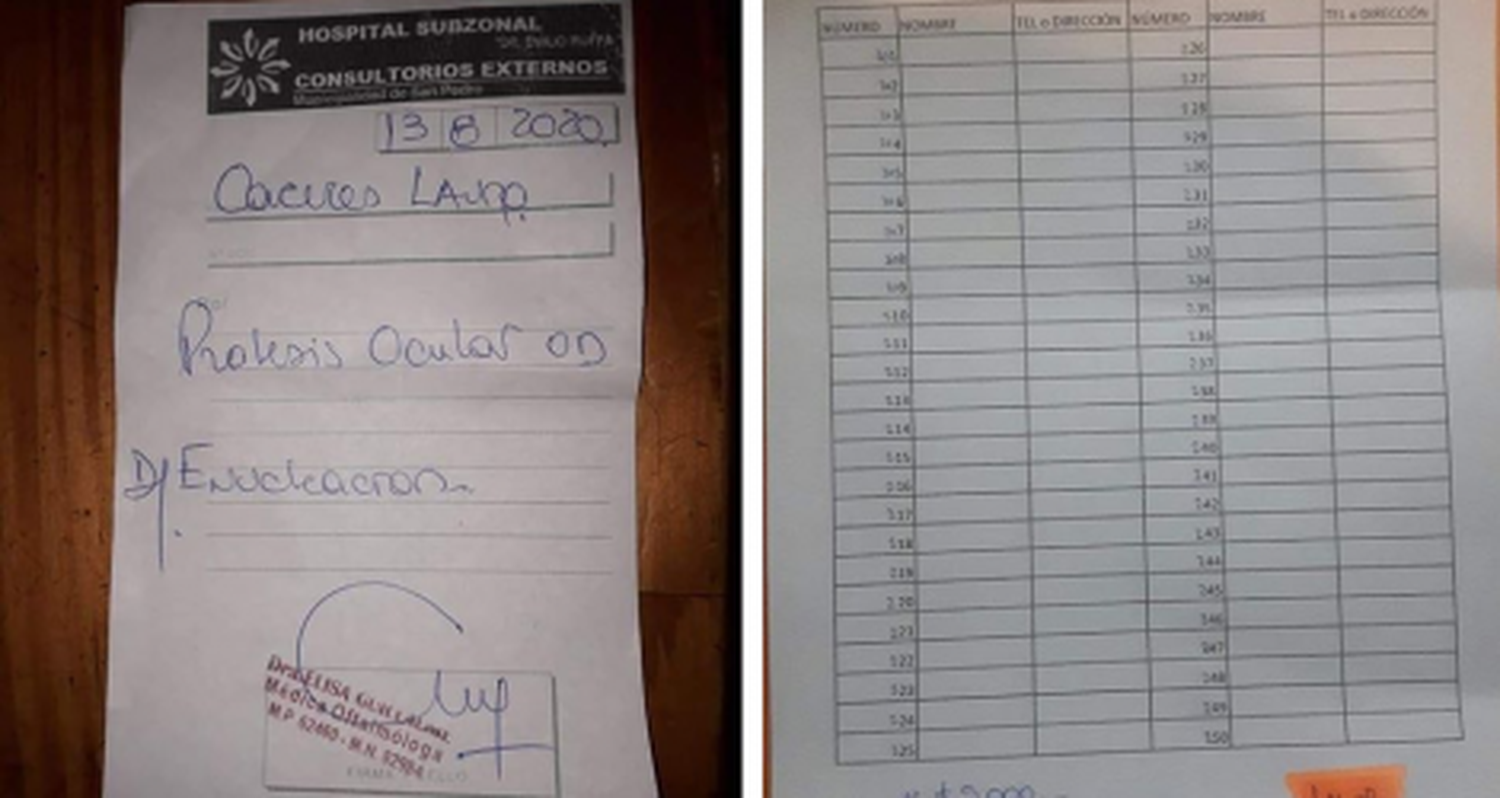 HOSPITAL SUBZONAL
CONSULTORIOS EXTERNOS
Municipalidad de San Pedro
13 8 2020
Caceres Laura
Rp/
Protesis Ocular OD
D/ Enucleacion
Dra. ELISA
Médica Oftalmóloga
M.P. 62460 - M.N. 82984
FIRMA SELLO
NÚMERO NOMBRE TEL o DIRECCIÓN NÚMERO NOMBRE TEL o DIRECCIÓN
101 126
102 127
103 128
104 129
105 130
106 131
107 132
108 133
109 134
110 135
111 136
112 137
113 138
114 139
115 140
116 141
117 142
118 143
119 144
120 145
121 146
122 147
123 148
124 149
125 150
$ 2000